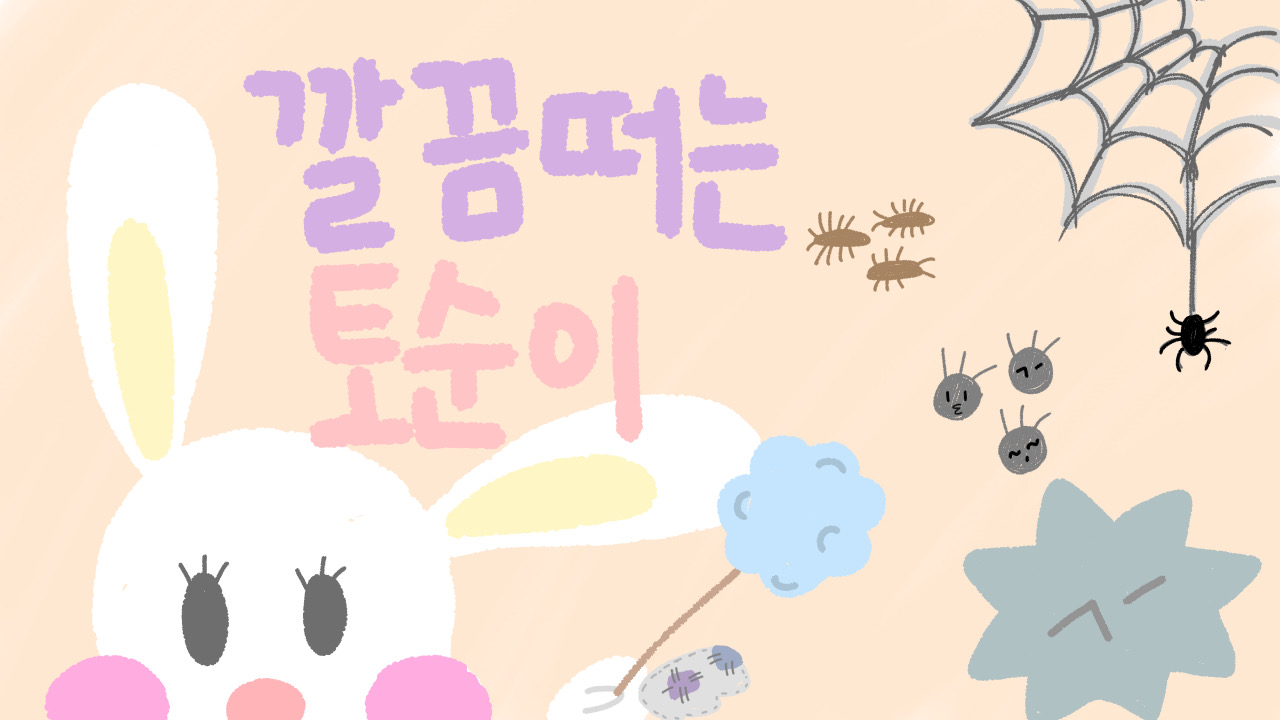 깔끔떠는
토순이